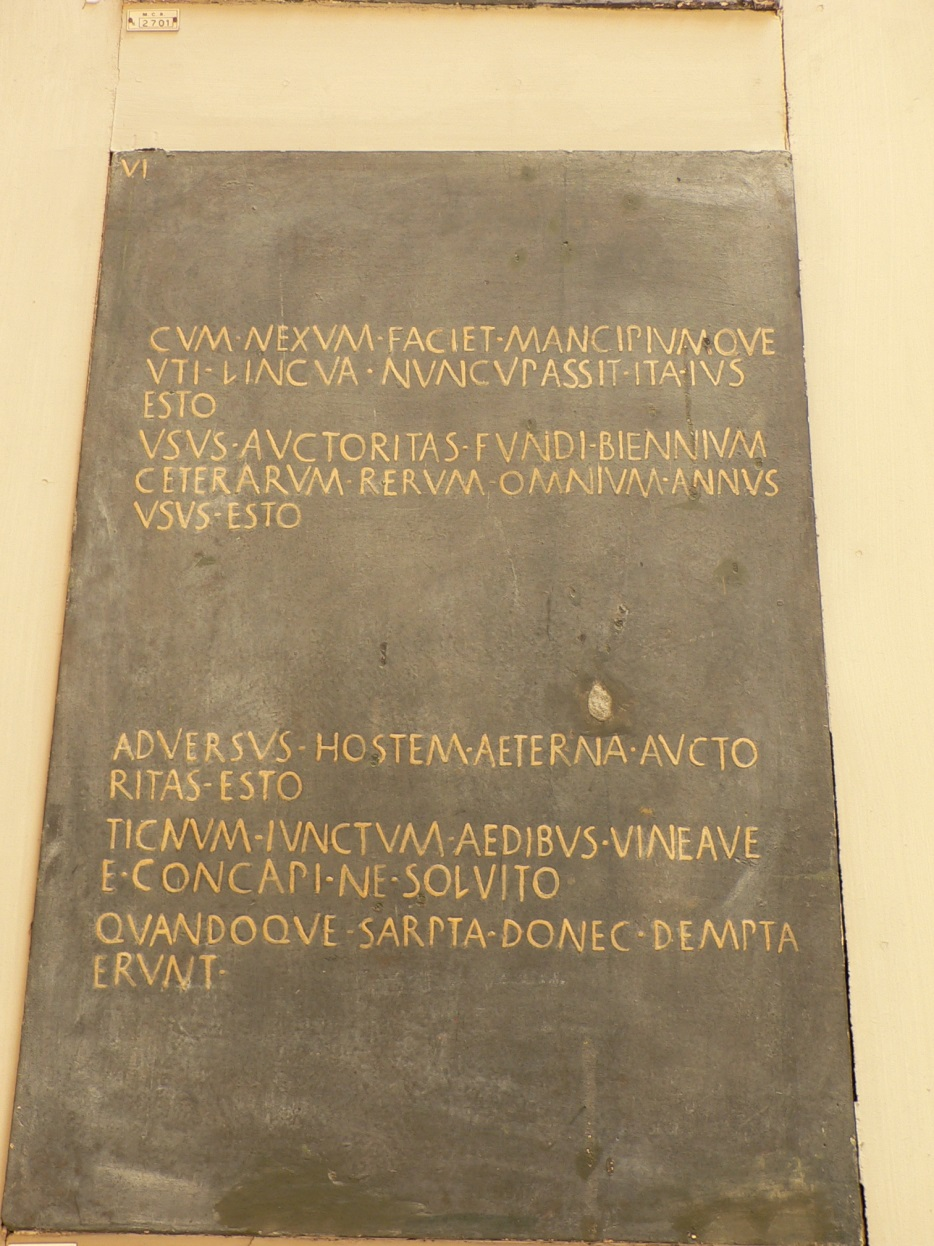 M C R
2701
VI
CVM·NEXVM·FACIET·MANCIPIVMQVE
VTI·LINCVA·NVNCVPASSIT·ITA·IVS
ESTO
VSVS·AVCTORITAS·FVNDI·BIENNIVM
CETERARVM·RERVM·OMNIVM·ANNVS
VSVS·ESTO
ADVERSVS·HOSTEM·AETERNA·AVCTO
RITAS·ESTO
TICNVM·IVNCTVM·AEDIBVS·VINEAVE
E·CONCAPI·NE·SOLVITO
QVANDOQVE·SARPTA·DONEC·DEMPTA
ERVNT·